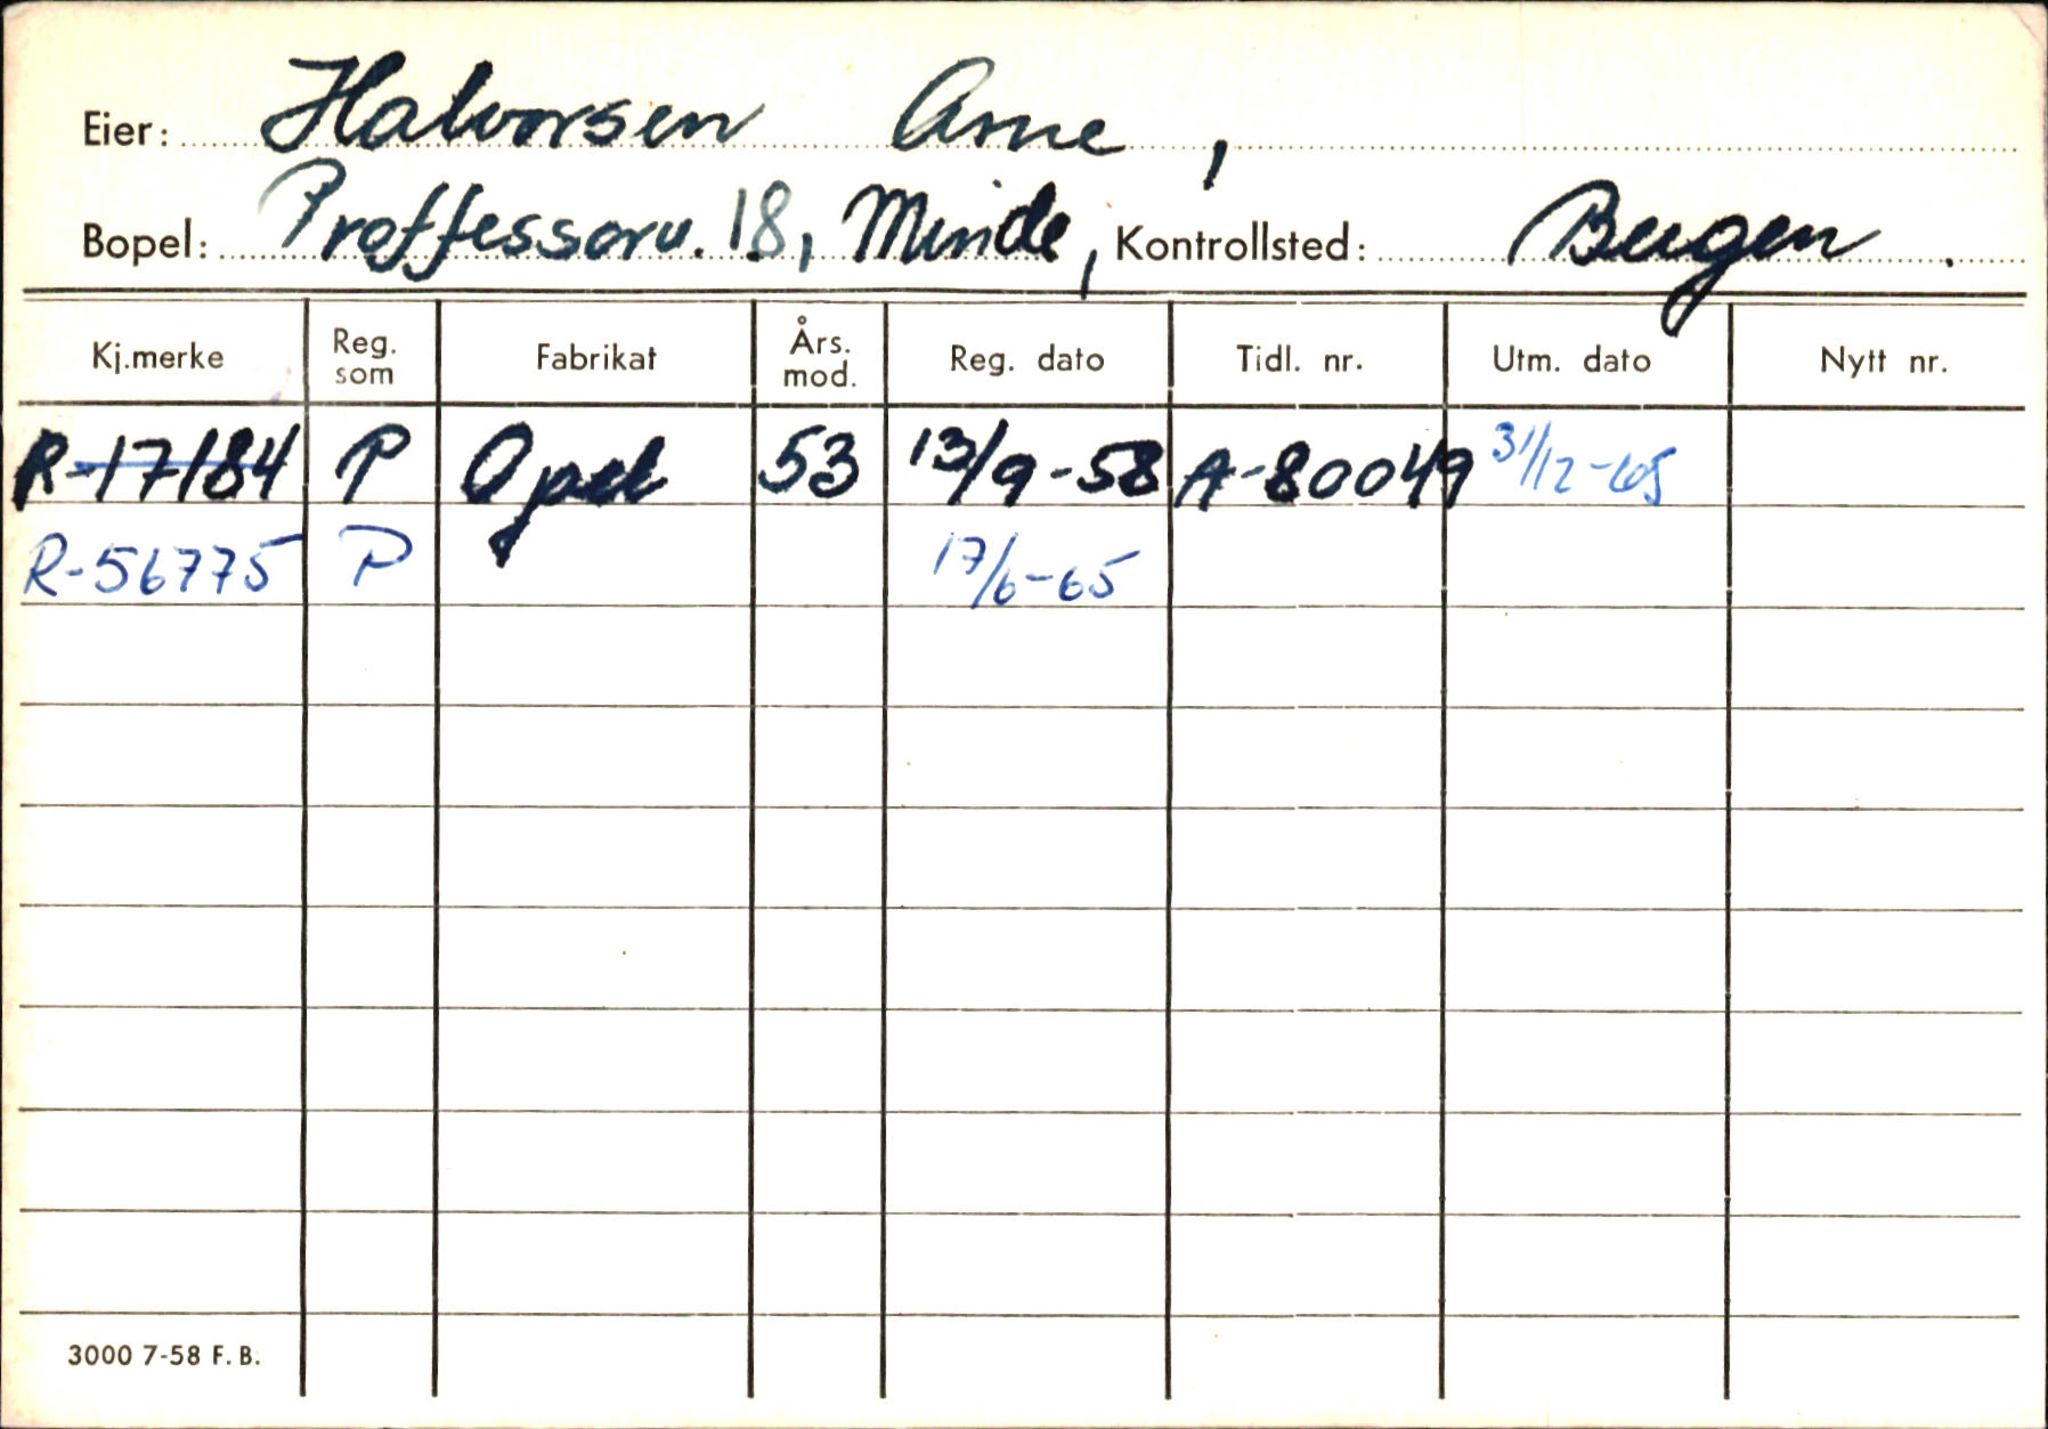 Eier: Halvorsen Arne,
Bopel: Proffessorv. 18, Minde, Kontrollsted: Bergen.
Kj.merke Reg. som Fabrikat Års. mod. Reg. dato Tidl. nr. Utm. dato Nytt nr.
R-17184 P Opel 53 13/9-58 A-80049 31/12-65
R-56775 P 17/6-65
3000 7-58 F. B.